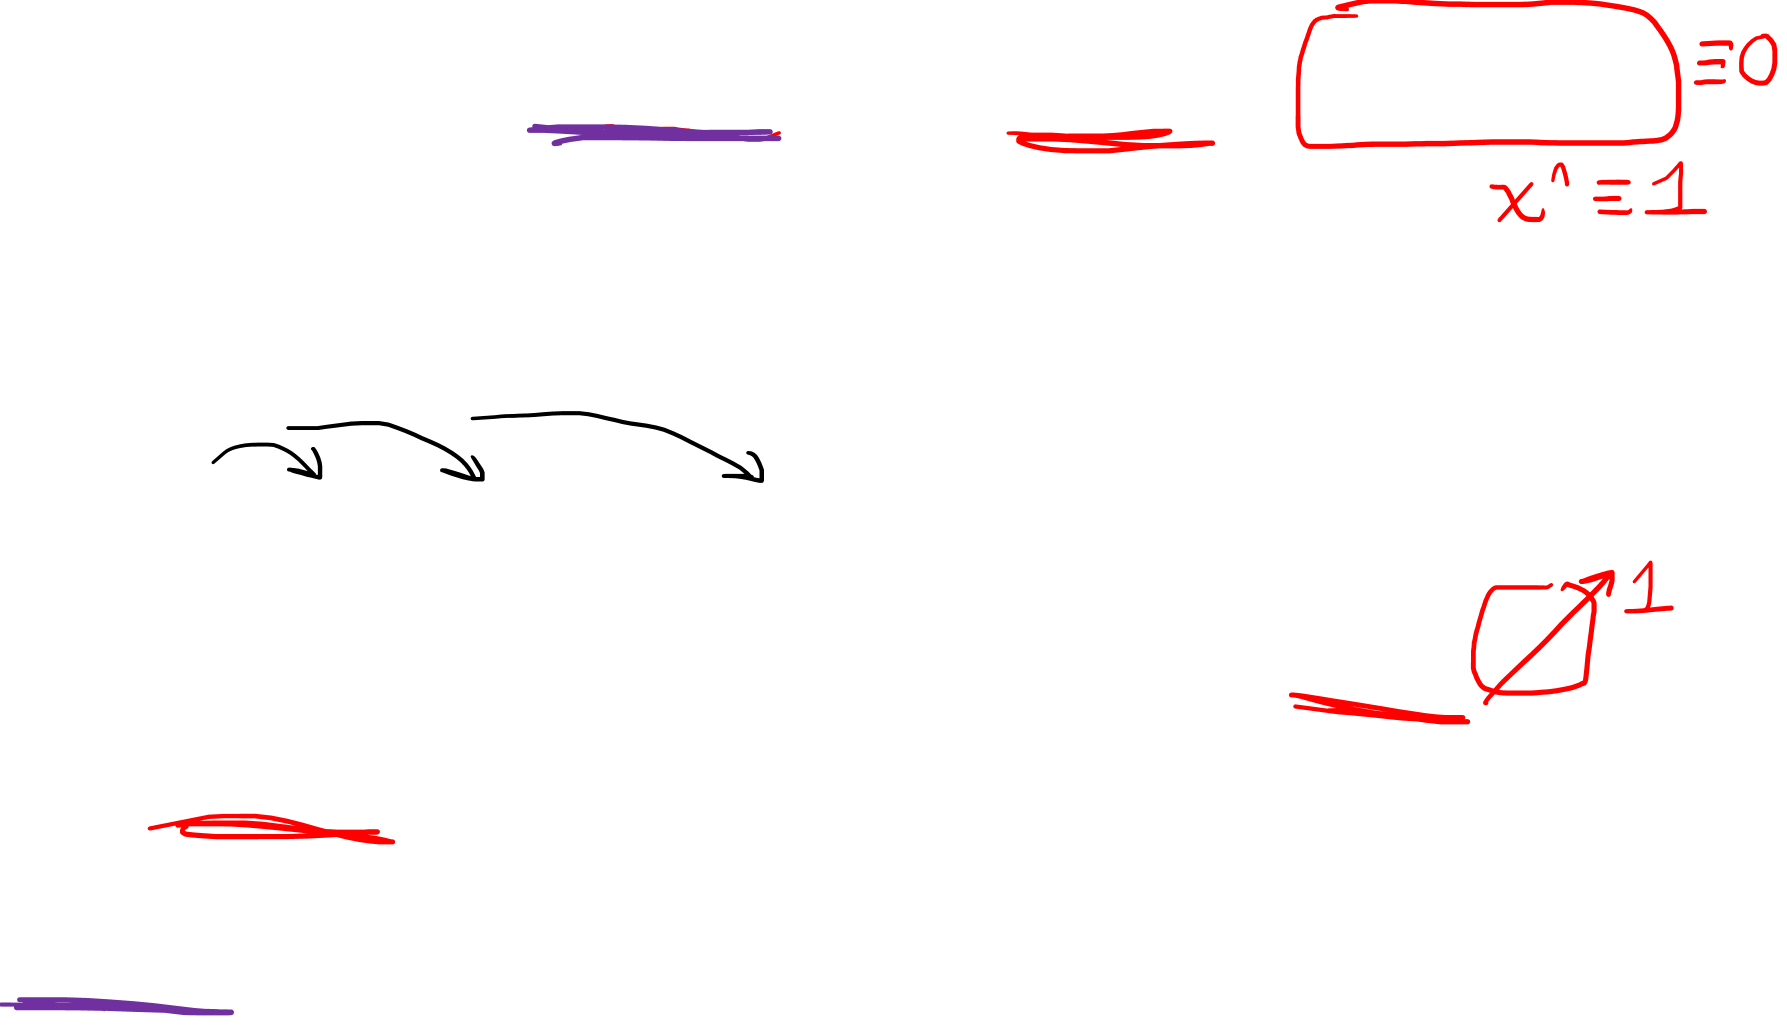 ≡0
xⁿ ≡ 1
1